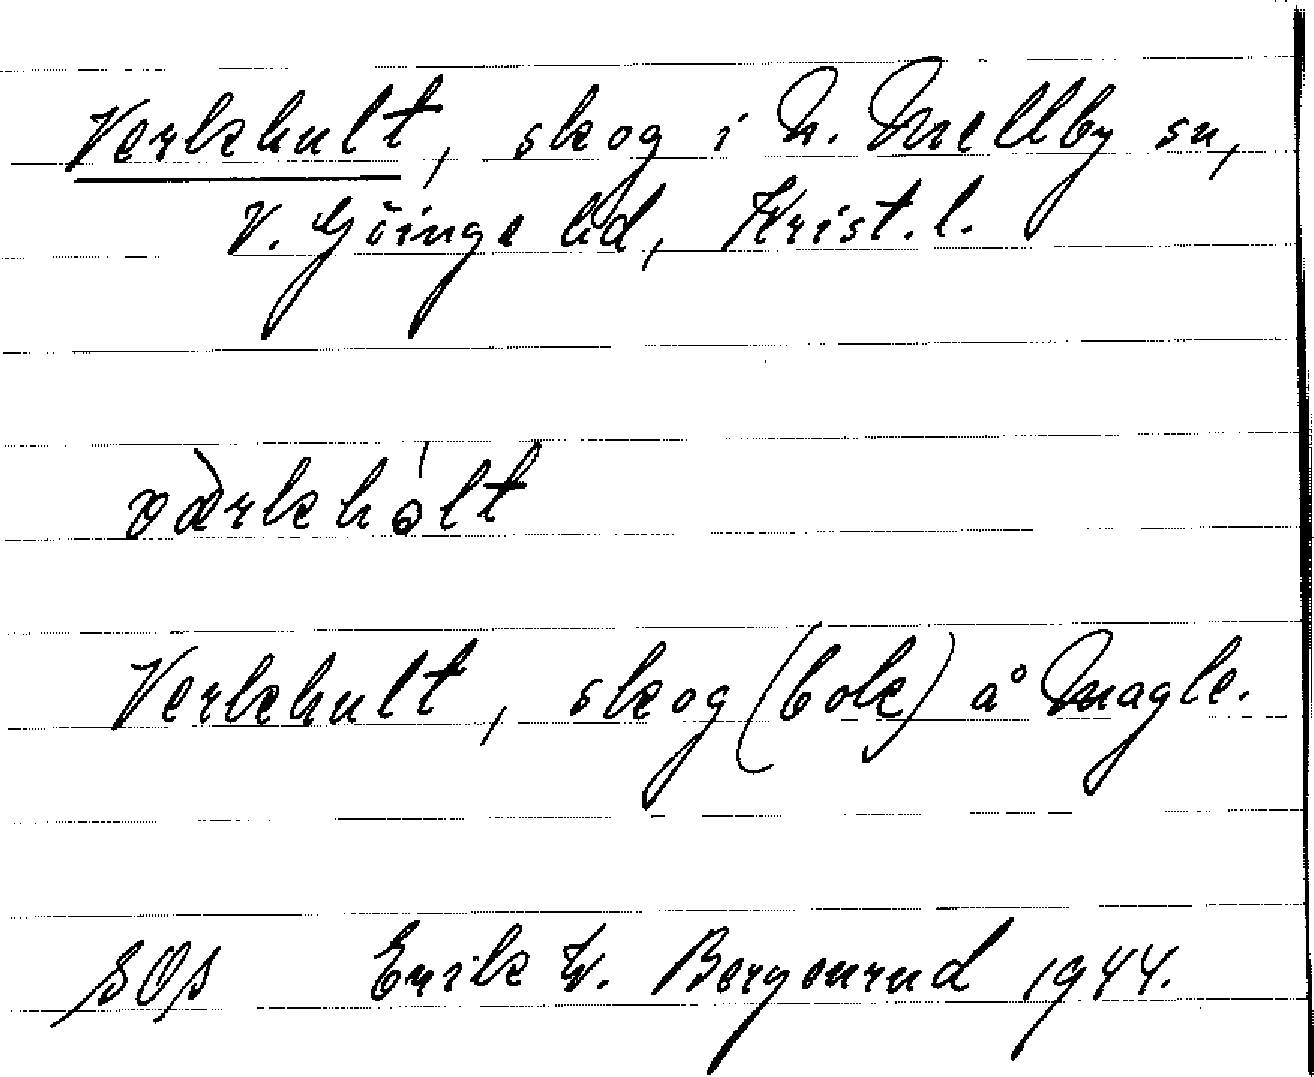 Verkhult, skog i N. Mellby sn,
V. Göinge hd, Krist. l.
værkhólt
Verkhult, skog (bok) å Magle.
SOS Erik W. Bergenrud 1944.